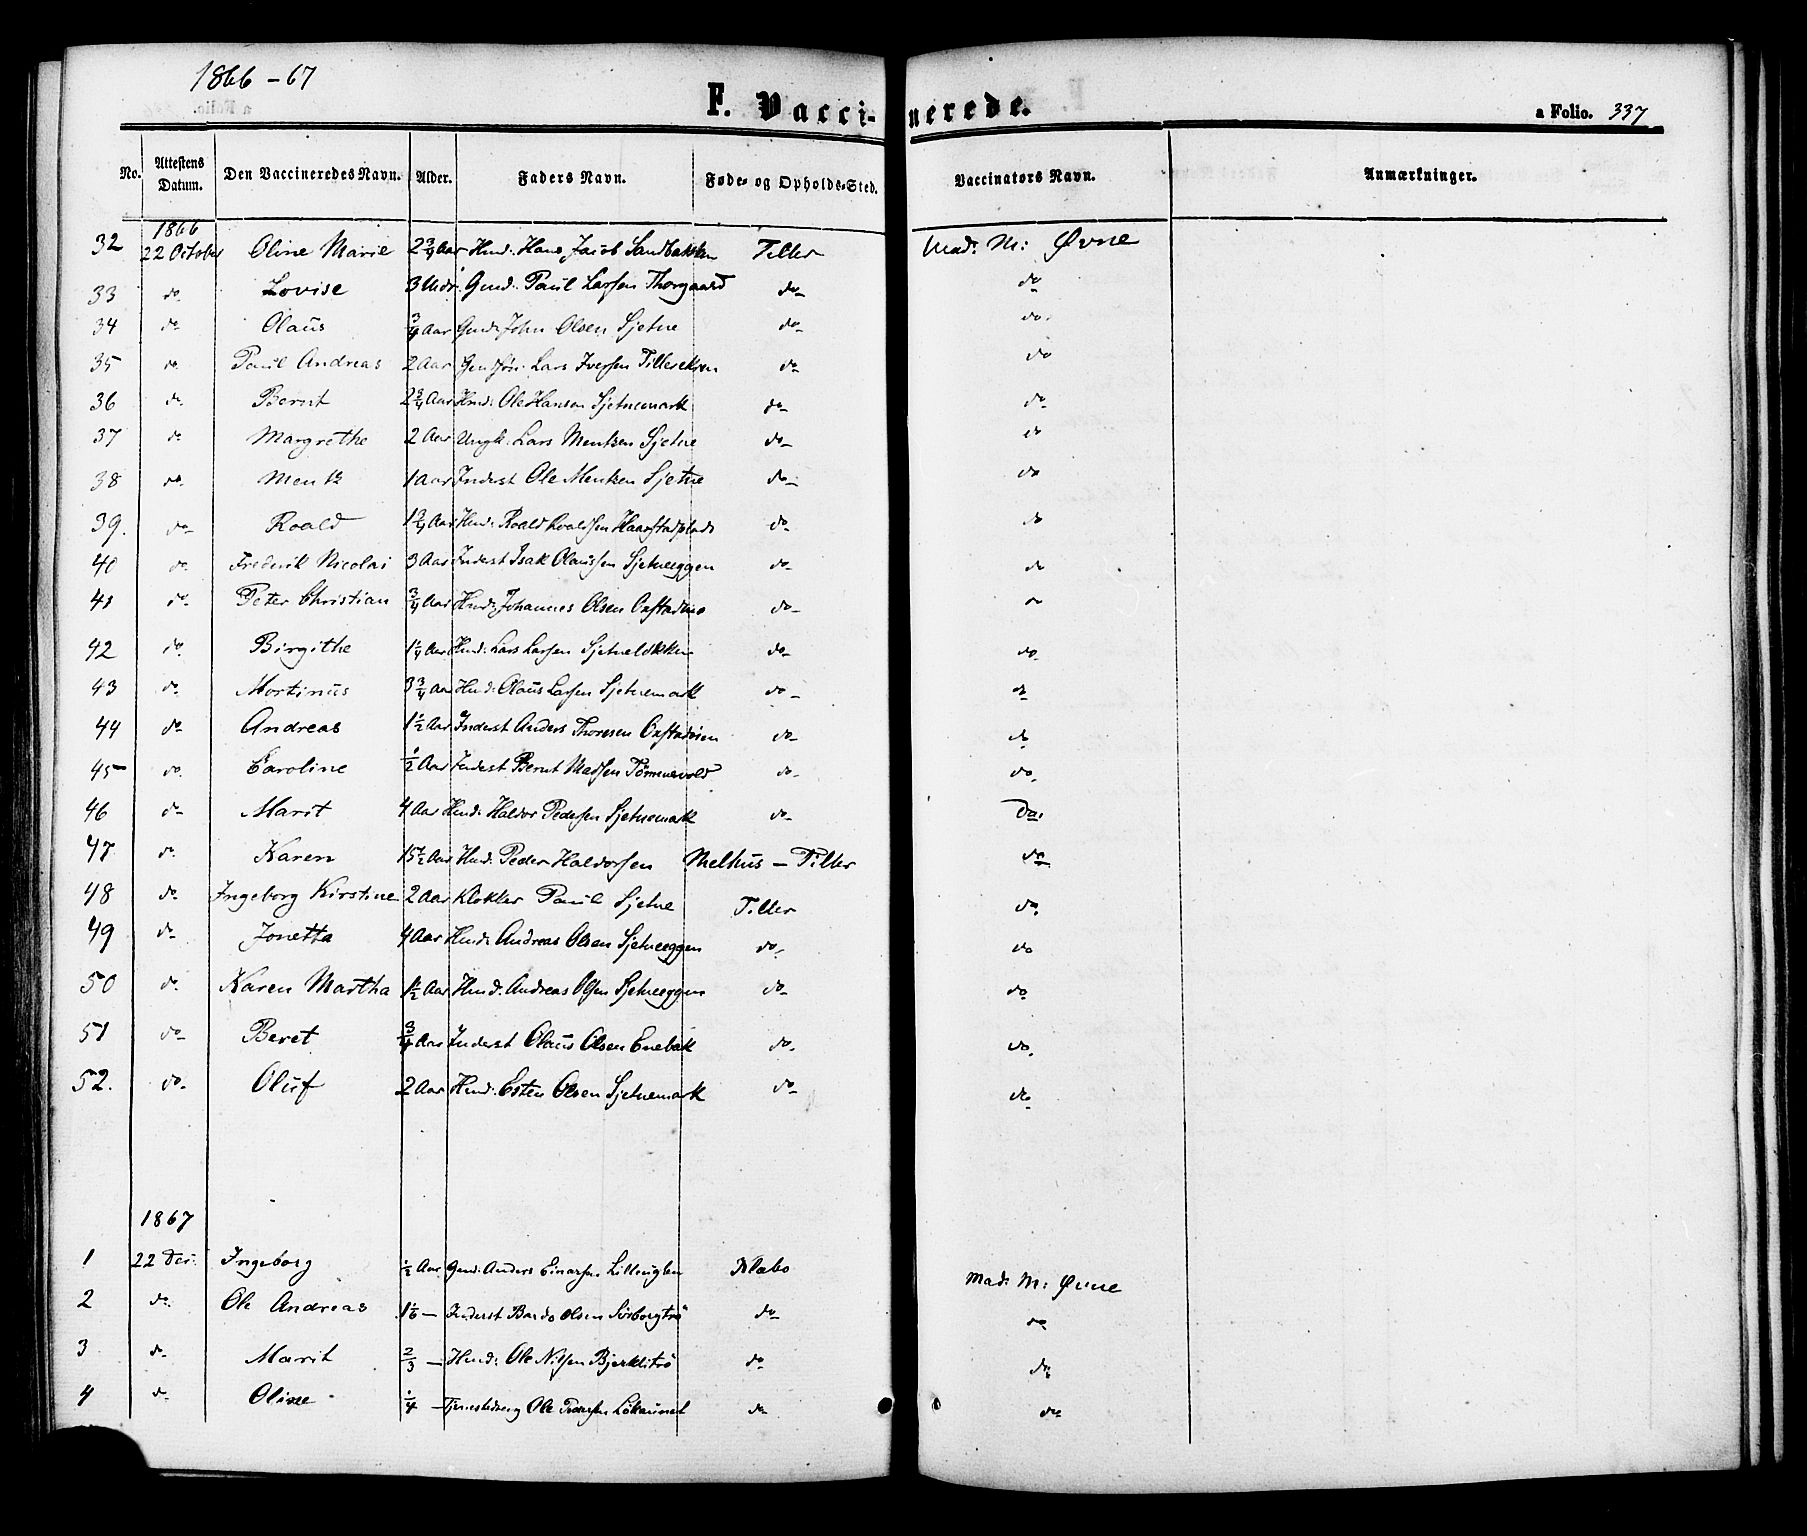 1866-67
F. Vaccinerede. a Folio. 337
No. Attestens Datum. Den Vaccineredes Navn. Alder. Faders Navn. Føde- og Opholds-Sted. Vaccinators Navn. Anmærkninger.
1866
32 22 October Oline Marie 2 3/4 Aar Hmd. Hans Jacob Sandbakken Tiller Mad. M: Øvne
33 do Lovise 3 Mdr. Gmd. Paul Larsen Thorgaard do do
34 do Olaus 3/4 Aar Gmd. John Olsen Sjetne do do.
35 do Paul Andreas 2 Aar Lars Iversen do do
36 do Bernt 2 3/4 Aar Hmd. Ole Hansen Sjetnemark do do
37 do Margrethe 2 Aar Ungk. Lars Mentzen Sjetne do do
38 do Mentz 1 Aar Inderst Ole Mentzen Sjetne do do
39. do Roald 1 3/4 Aar Hmd. Roald Roaldsen Haarstadplads do do
40 do Frederik Nicolai 3 Aar Inderst Isak Olaussen Sjetneeggen do do
41 do Peter Christian 3/4 Aar Hmd. Johannes Olsen do do
42 do Birgithe 1 1/4 Aar Hmd. Lars Larsen Sjetneløkken do do
43 do Mortinus 3 3/4 Aar Hmd. Olaus Larsen Sjetnemark do do
44 do Andreas 1 1/2 Aar Inderst Anders Thoresen do do
45 do Caroline 1/2 Aar Inderst Bernt Madsen Tømmervold do do.
46 do Marit 4 Aar Hmd. Haldor Pedersen Sjetnemark do Do.
47 do. Karen 15 1/2 Aar Hmd. Peder Haldorsen Melhus - Tiller do
48 do Ingeborg Kirstine 2 Aar Klokker Paul Sjetne Tiller do
49 do Jonetta 4 Aar Hmd. Andreas Olsen Sjetneeggen do do
50 do. Karen Martha 1 1/2 Aar Hmd. Andreas Olsen Sjetneeggen do do
51 do Beret 3/4 Aar Inderst Olaus Olsen Enebak do. do.
52. do Oluf 2 Aar Hmd. Esten Olsen Sjetnemark do do
1867
1 22 Dec. Ingeborg 1/2 Aar Gmd. Anders Einarsen Klæbo Mad. M: Øvne
2 do. Ole Andreas 1 1/6 - Inderst Bardo Olsen do do
3 do Marit 2/3 - Hmd. Ole Nilsen do do
4 do Oline 1/4 - Tjenestedreng Ole Pedersen do do